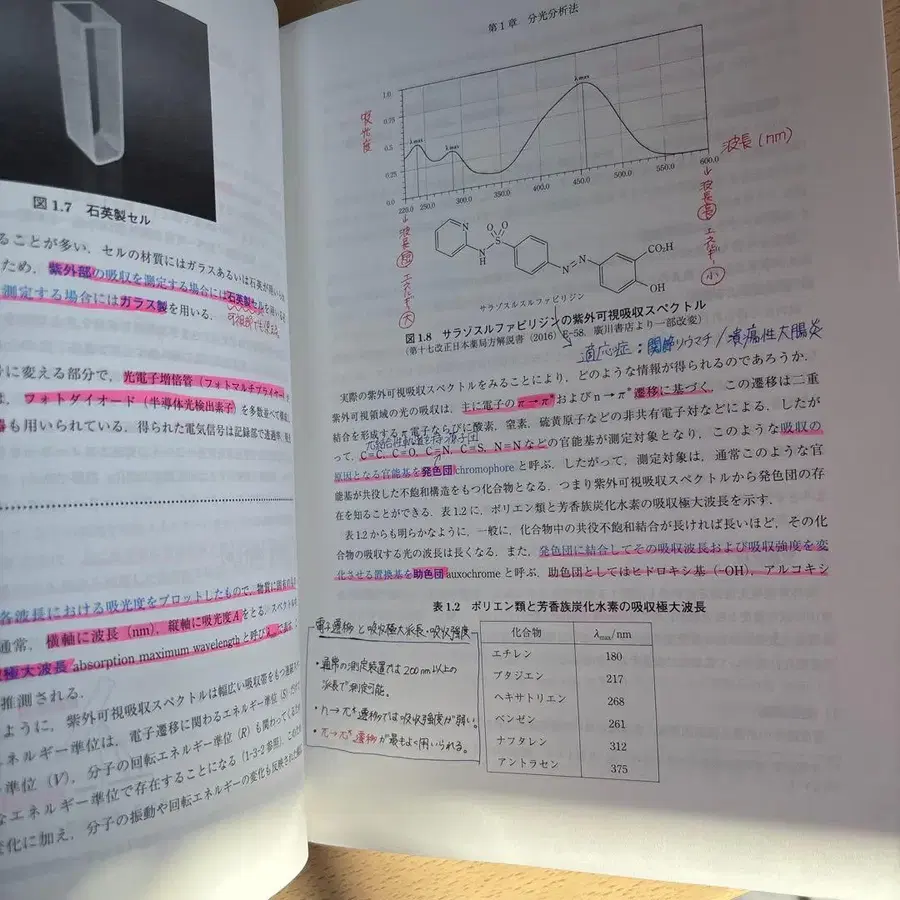 図 1.7 石英製セル
ることが多い．セルの材質にはガラスあるいは石英が用いられ
ため，紫外部の吸収を測定する場合には石英製セルを用い
測定する場合にはガラス製を用いる．
に変える部分で，光電子増倍管（フォトマルチプライヤー
は，フォトダイオード（半導体光検出素子）を多数並べて
も用いられている．得られた電気信号は記録部で
各波長における吸光度をプロットしたもので，物質に
通常，横軸に波長（nm），縦軸に吸光度Aをとる．スペクトル
極大波長 absorption maximum wavelength と呼び，
推測される．
ように，紫外可視吸収スペクトルは幅広い吸収帯をもつ
ネルギー準位は，電子遷移に関わるエネルギー準位（S）だけで
準位（V），分子の回転エネルギー準位（R）も関わってくる
なエネルギー準位で存在することになる（1-3-2 参照）．このため
変化に加え，分子の振動や回転エネルギーの変化も反映された
第1章 分光分析法
吸光度
1.0
0.75
0.5
0.25
0.0
λmax
λmax
λmax
220.0 250.0 300.0 350.0 400.0 450.0 500.0 550.0 600.0
波長(nm)
↓波長短 エネルギー大
↓波長長 エネルギー小
N
N
H
S
O
O
N=N
CO₂H
OH
サラゾスルファピリジン
図 1.8 サラゾスルファピリジンの紫外可視吸収スペクトル
（第十七改正日本薬局方解説書（2016）E-58，廣川書店より一部改変）
適応症：関節リウマチ/潰瘍性大腸炎
実際の紫外可視吸収スペクトルをみることにより，どのような情報が得られるのであろうか．
紫外可視領域の光の吸収は，主に電子のπ→π*およびn→π*遷移に基づく．この遷移は二重
結合を形成するπ電子ならびに酸素，窒素，硫黄原子などの非共有電子対などによる．したが
って，C=C，C=O，C=N，C=S，N=Nなどの官能基が測定対象となり，このような吸収の
原因となる官能基を発色団 chromophore と呼ぶ．したがって，測定対象は，通常このような官
能基が共役した不飽和構造をもつ化合物となる．つまり紫外可視吸収スペクトルから発色団の存
在を知ることができる．表1.2に，ポリエン類と芳香族炭化水素の吸収極大波長を示す．
表1.2からも明らかなように，一般に，化合物中の共役不飽和結合が長ければ長いほど，その化
合物の吸収する光の波長は長くなる．また，発色団に結合してその吸収波長および吸収強度を変
化させる置換基を助色団 auxochrome と呼ぶ．助色団としてはヒドロキシ基（−OH），アルコキシ
表 1.2 ポリエン類と芳香族炭化水素の吸収極大波長
電子遷移と吸収極大波長・吸収強度
・通常の測定装置では200nm以上の
波長で測定可能。
・n→π*遷移では吸収強度が弱い。
・π→π*遷移が最もよく用いられる。
化合物 λmax/nm
エチレン 180
ブタジエン 217
ヘキサトリエン 268
ベンゼン 261
ナフタレン 312
アントラセン 375